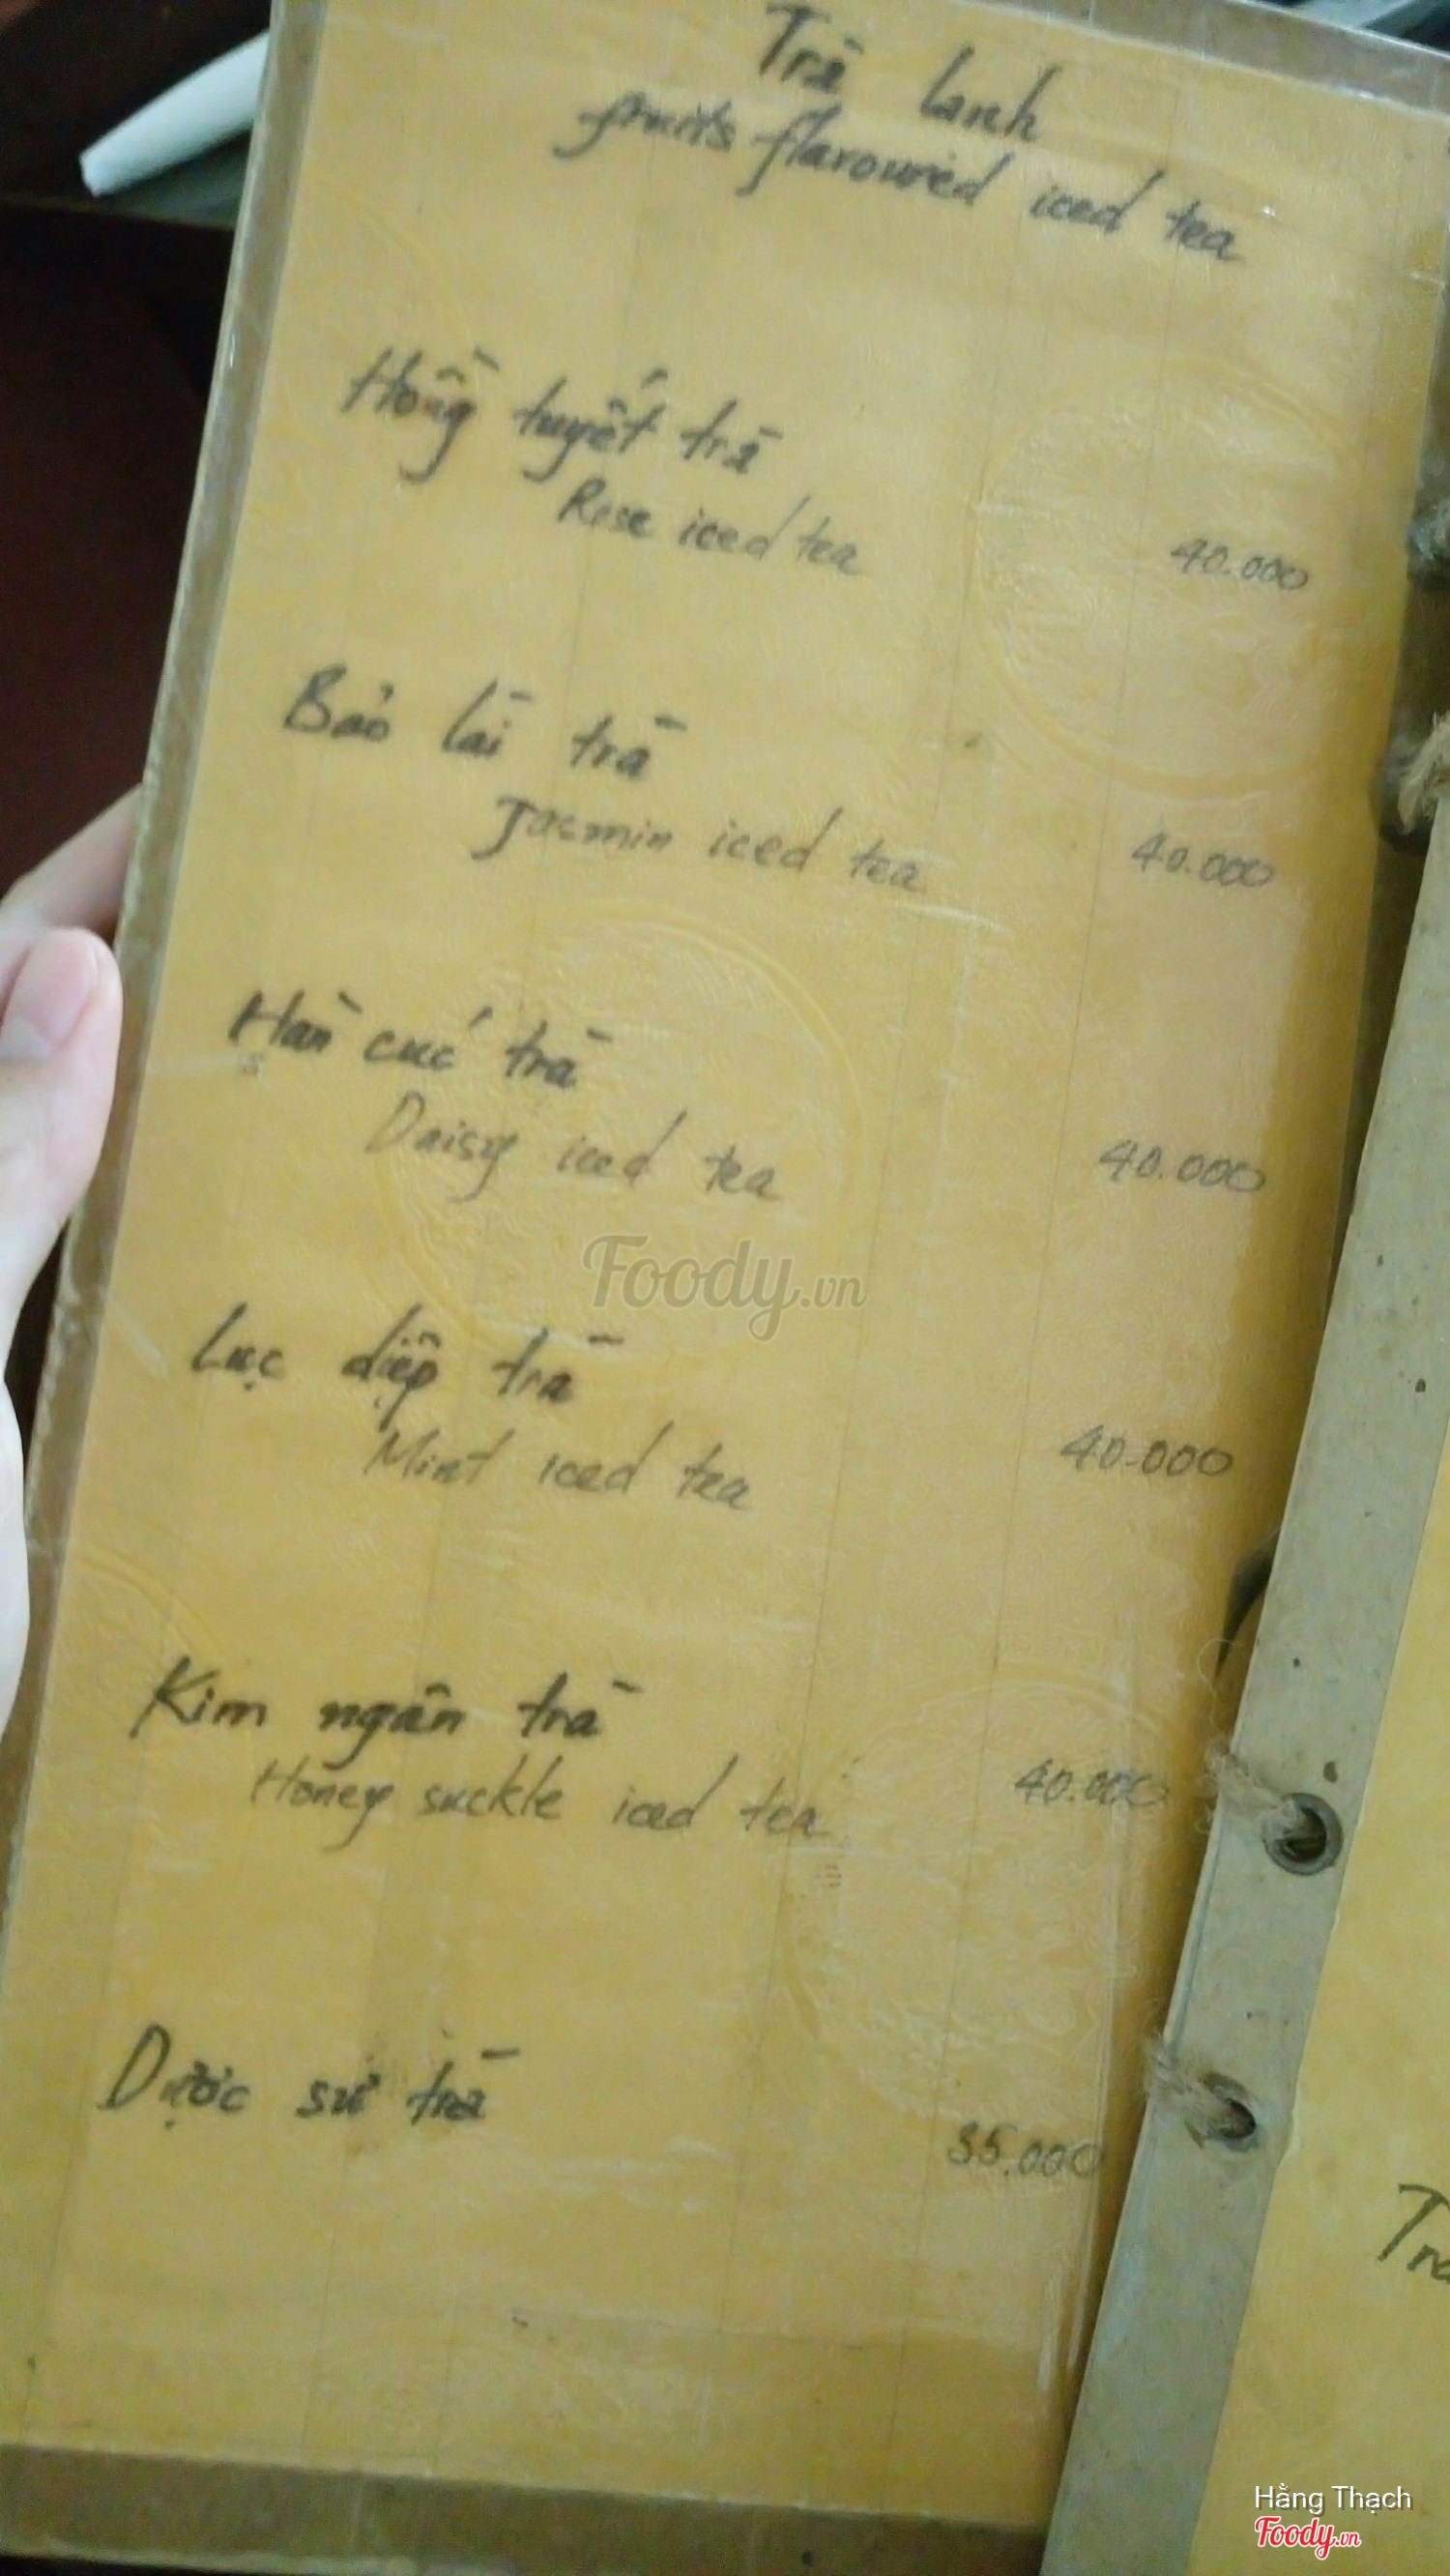 Trà lanh
fruits flavoured iced tea
Hồng tuyết trà
Rose iced tea
40.000
Bảo lài trà
Jacmin iced tea
40.000
Hàn cúc trà
Daisy iced tea
40.000
Lục diệp trà
Mint iced tea
40.000
Kim ngân trà
Honey suckle iced tea
40.000
Dược sư trà
35.000
Foody.vn
Hằng Thạch
Foody.vn